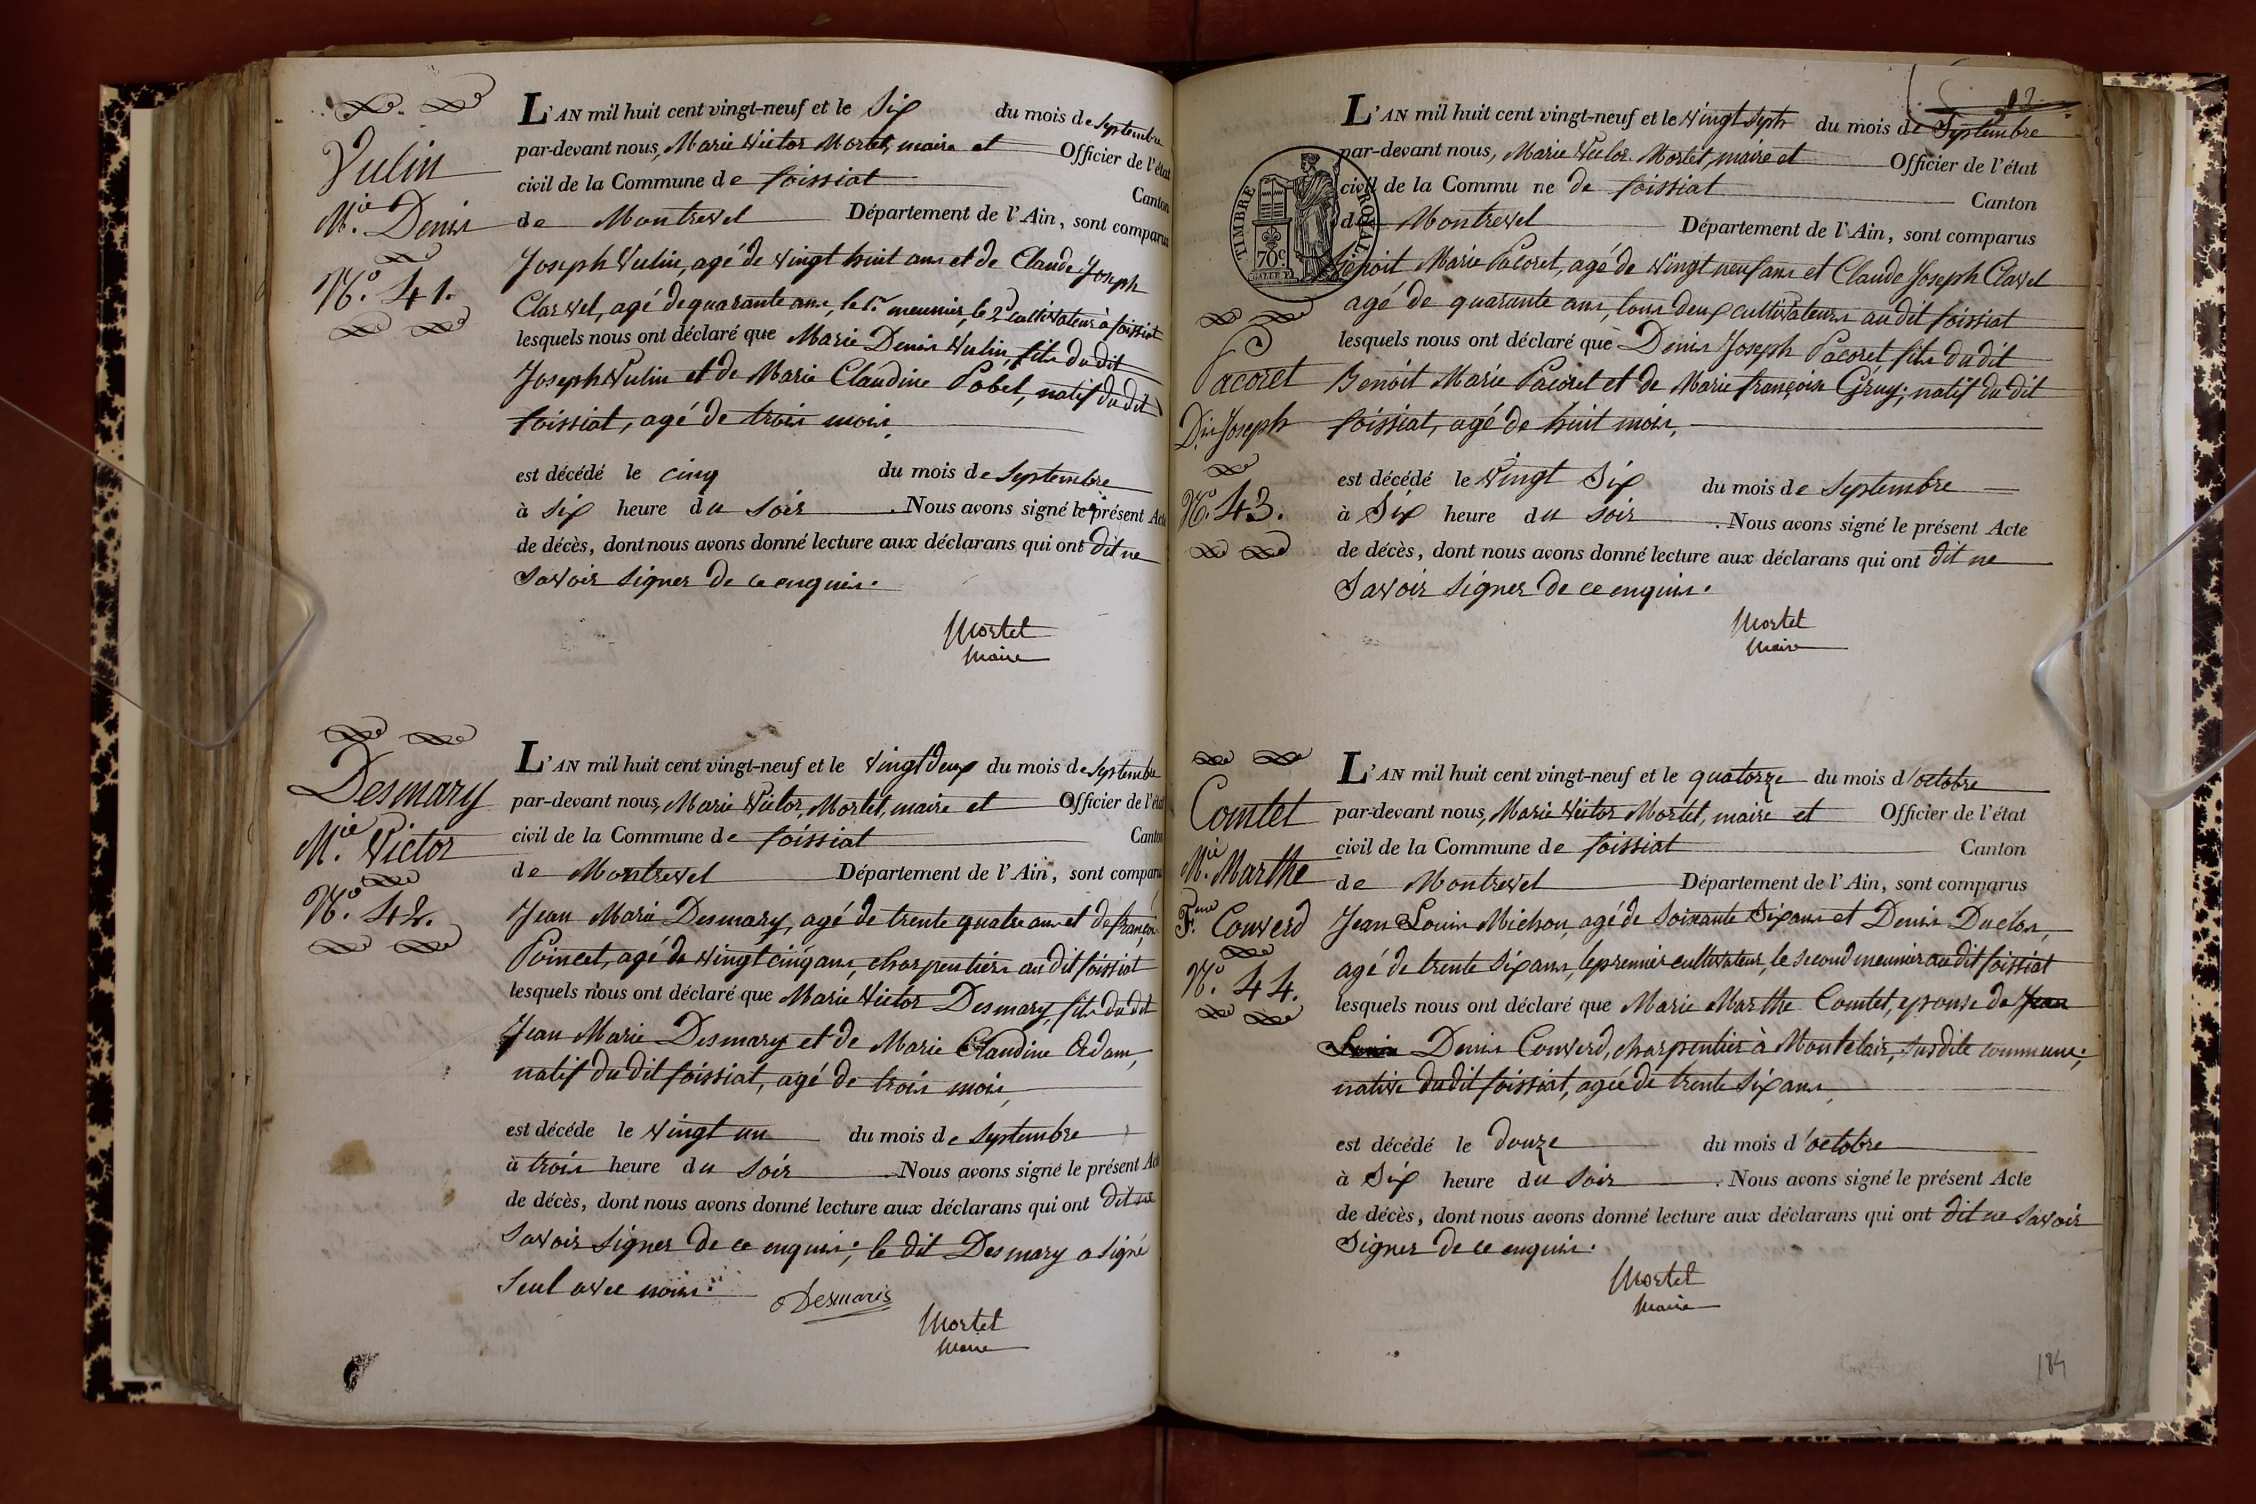 Vulin
M.ie Denis
N.o 41.
L'AN mil huit cent vingt-neuf et le Six du mois de Septembre
par-devant nous, Marie Victor Mortet, maire et Officier de l'état
civil de la Commune de foissiat Canton
de Montrevel Département de l'Ain, sont comparus
Joseph Vulin, agé de vingt huit ans et de Claude Joseph
Clarvel, agé de quarante ans, le 1.r meunier, le 2.d cultivateur à foissiat
lesquels nous ont déclaré que Marie Denis Vulin, fils du dit
Joseph Vulin et de Marie Claudine Pobel, natif du dit
foissiat, agé de trois mois,
est décédé le cinq du mois de Septembre
à Six heure du Soir. Nous avons signé le présent Acte
de décès, dont nous avons donné lecture aux déclarans qui ont dit ne
Savoir Signer de ce enquis.
Mortet
Maire
Desmary
M.ie Victor
N.o 42.
L'AN mil huit cent vingt-neuf et le vingt deux du mois de Septembre
par-devant nous, Marie Victor Mortet, maire et Officier de l'état
civil de la Commune de foissiat Canton
de Montrevel Département de l'Ain, sont comparus
Jean Marie Desmary, agé de trente quatre ans et de françois
Poincet, agé de vingt cinq ans, charpentiers au dit foissiat
lesquels nous ont déclaré que Marie Victor Desmary, fils du dit
Jean Marie Desmary et de Marie Claudine Adam,
natif du dit foissiat, agé de trois mois,
est décéde le vingt un du mois de Septembre
à trois heure du Soir. Nous avons signé le présent Acte
de décès, dont nous avons donné lecture aux déclarans qui ont dit ne
Savoir Signer de ce enquis; le dit Desmary a Signé
Seul avec nous.
Desmaris
Mortet
Maire
TIMBRE ROYAL
70c.
Pacoret
D.is Joseph
N.o 43.
L'AN mil huit cent vingt-neuf et le vingt Sept du mois de Septembre
par-devant nous, Marie Victor Mortet, maire et Officier de l'état
civil de la Commune de foissiat Canton
de Montrevel Département de l'Ain, sont comparus
Benoit Marie Pacoret, agé de vingt neuf ans et Claude Joseph Clavel
agé de quarante ans, tous deux cultivateurs au dit foissiat
lesquels nous ont déclaré que Denis Joseph Pacoret fils du dit
Benoit Marie Pacoret et de Marie françoise Gruy; natif du dit
foissiat, agé de huit mois,
est décédé le vingt Six du mois de Septembre
à Six heure du Soir. Nous avons signé le présent Acte
de décès, dont nous avons donné lecture aux déclarans qui ont dit ne
Savoir Signer de ce enquis.
Mortet
Maire
Comtet
M.ie Marthe
F.me Converd
N.o 44.
L'AN mil huit cent vingt-neuf et le quatorze du mois d'octobre
par-devant nous, Marie Victor Mortet, maire et Officier de l'état
civil de la Commune de foissiat Canton
de Montrevel Département de l'Ain, sont comparus
Jean Louis Michon, agé de Soixante Six ans et Denis Duclos,
agé de trente Six ans, le premier cultivateur, le Second meunier au dit foissiat
lesquels nous ont déclaré que Marie Marthe Comtet, epouse de Jean
Louis Denis Converd, charpentier à Montclair, Susdite commune;
native du dit foissiat, agée de trente Six ans,
est décédé le douze du mois d'octobre
à Six heure du Soir. Nous avons signé le présent Acte
de décès, dont nous avons donné lecture aux déclarans qui ont dit ne Savoir
Signer de ce enquis.
Mortet
Maire
184